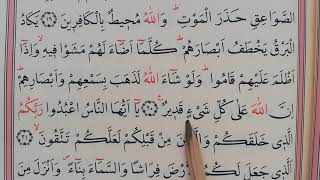 الصَّوَاعِقِ حَذَرَ الْمَوْتِ ۚ وَاللّٰهُ مُحِيطٌ بِالْكَافِرِينَ ﴿١٩﴾ يَكَادُ
الْبَرْقُ يَخْطَفُ اَبْصَارَهُمْ ۜ كُلَّمَا اَضَاءَ لَهُمْ مَشَوْا فِيهِ وَاِذَا
اَظْلَمَ عَلَيْهِمْ قَامُوا ۜ وَلَوْ شَاءَ اللّٰهُ لَذَهَبَ بِسَمْعِهِمْ وَاَبْصَارِهِمْ ۜ
اِنَّ اللّٰهَ عَلٰى كُلِّ شَيْءٍ قَدِيرٌ ﴿٢٠﴾ يَا اَيُّهَا النَّاسُ اعْبُدُوا رَبَّكُمُ
الَّذِي خَلَقَكُمْ وَالَّذِينَ مِنْ قَبْلِكُمْ لَعَلَّكُمْ تَتَّقُونَ ﴿٢١﴾
الَّذِي جَعَلَ لَكُمُ الْاَرْضَ فِرَاشًا وَالسَّمَاءَ بِنَاءً ۖ وَاَنْزَلَ مِنَ